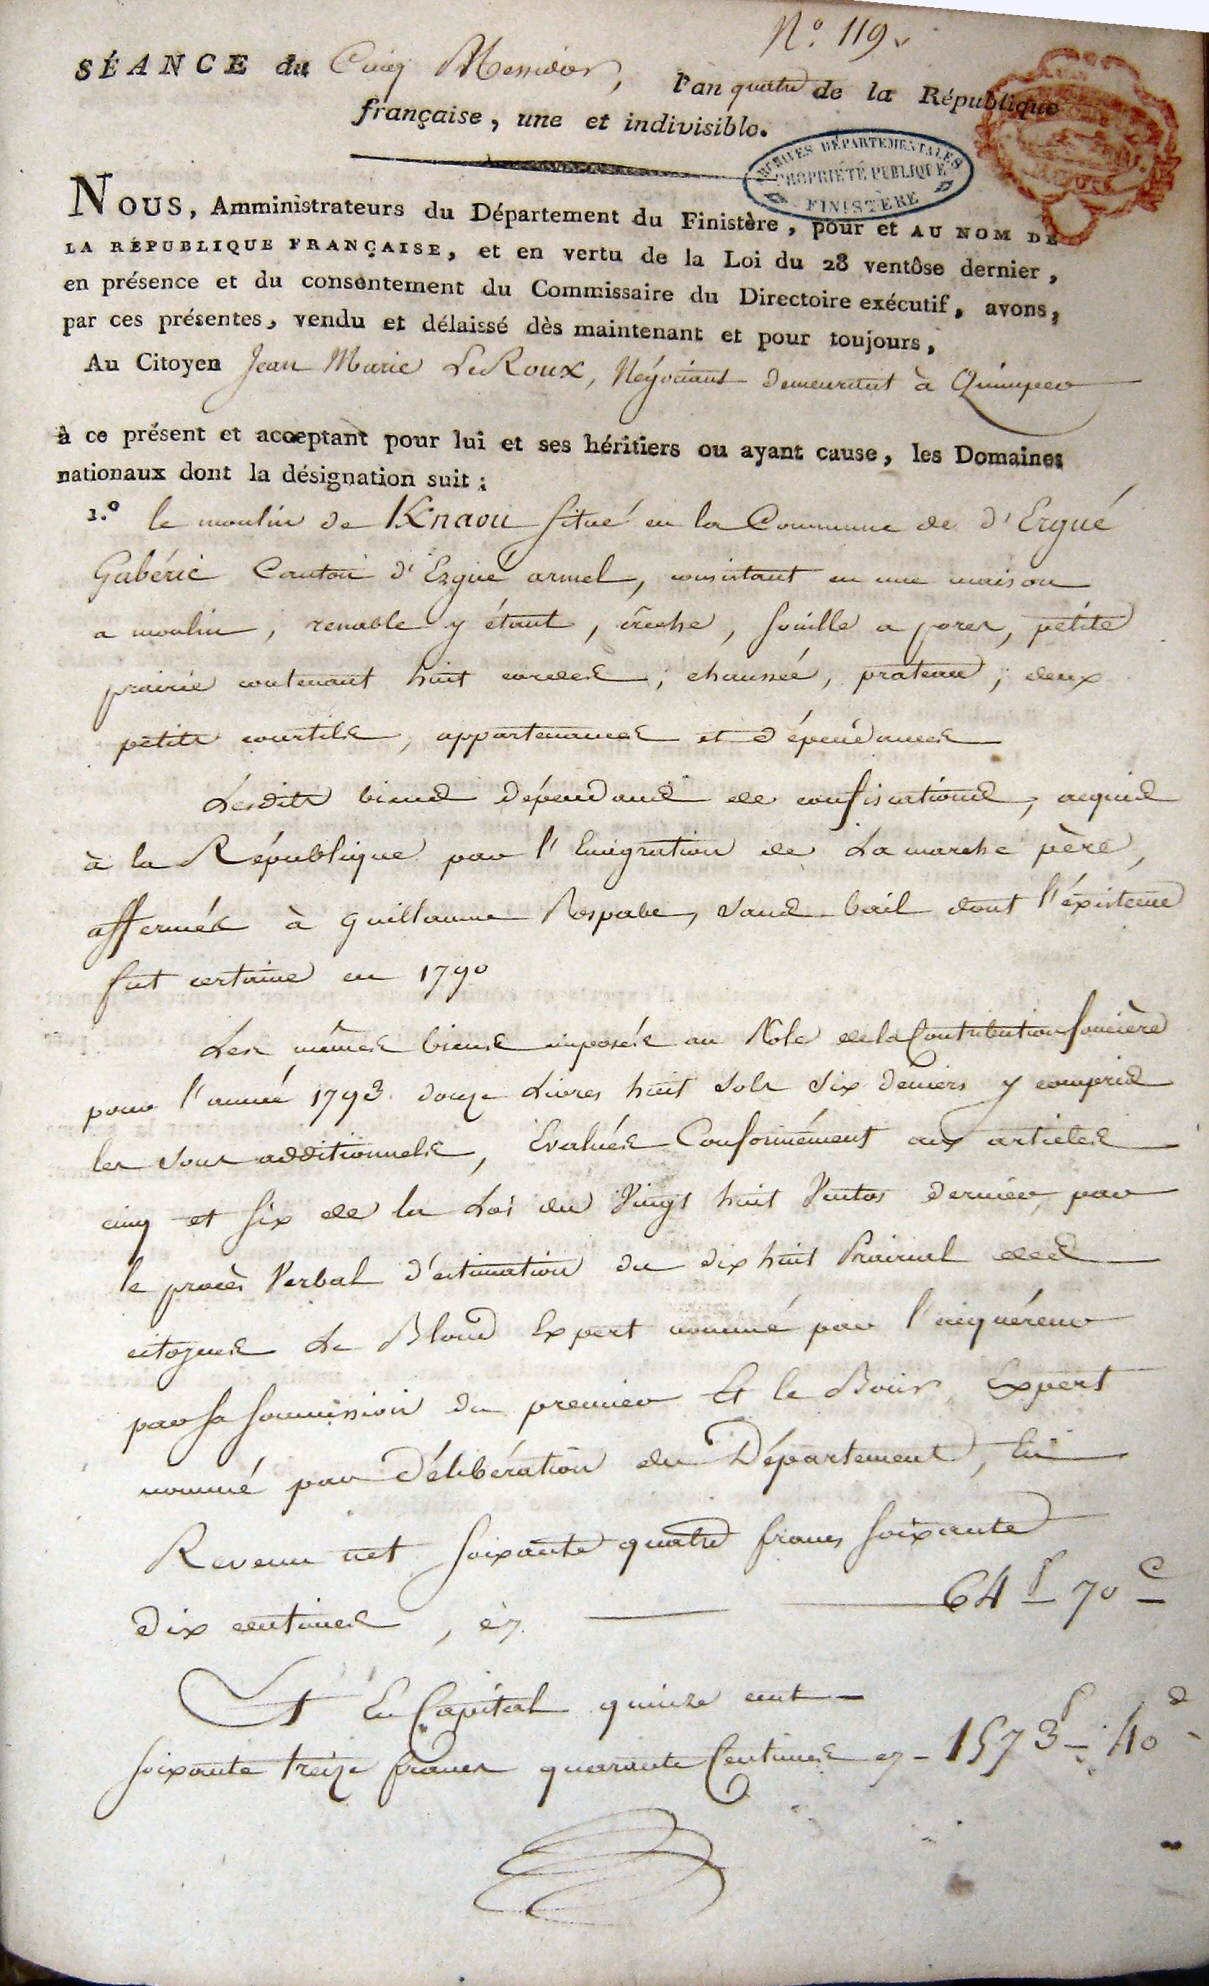 N.º 119.
SÉANCE du Cinq Messidor, l'an quatre de la République
française, une et indivisible.
ARCHIVES DÉPARTEMENTALES
PROPRIÉTÉ PUBLIQUE
FINISTÈRE
NOUS, Amministrateurs du Département du Finistère, pour et AU NOM DE
LA RÉPUBLIQUE FRANÇAISE, et en vertu de la Loi du 28 ventôse dernier,
en présence et du consentement du Commissaire du Directoire exécutif, avons,
par ces présentes, vendu et délaissé dès maintenant et pour toujours,
Au Citoyen Jean Marie LeRoux, Négociant demeurant à Quimper
à ce présent et acceptant pour lui et ses héritiers ou ayant cause, les Domaines
nationaux dont la désignation suit :
1.º le moulin de K'naou situé en la Commune de d'Ergué
Gabéric Canton d'Ergué armel, consistant en une maison
a moulin, renable y étant, crêche, souille a porcs, petite
prairie contenant huit cordes, chaussée, prateau, deux
petits courtils, appartenances et dépendances
Lesdits biens dépendans de confiscations, acquis
à la République par l'Emigration de Lamarche père,
affermés à Guillaume Rospabe, sans bail dont l'existence
fut certaine en 1790
Les mêmes biens imposés au Role de la Contribution foncière
pour l'année 1793 douze Livres huit sols six deniers y compris
les sous additionnels, Evalués Conformément aux articles
cinq et six de la Loi du Vingt huit Ventos dernier, par
le procès Verbal d'estimation du dix huit Prairial des
citoyens Le Blond Expert nommé par l'acquéreur
par sa soumission du premier Et le Expert
nommé par Délibération du Département, En
Revenu net soixante quatre francs soixante
dix centimes, cy 64 f 70 c
Et En Capital quinze cent
soixante treize francs quarante Centimes cy 1573 f 40 c